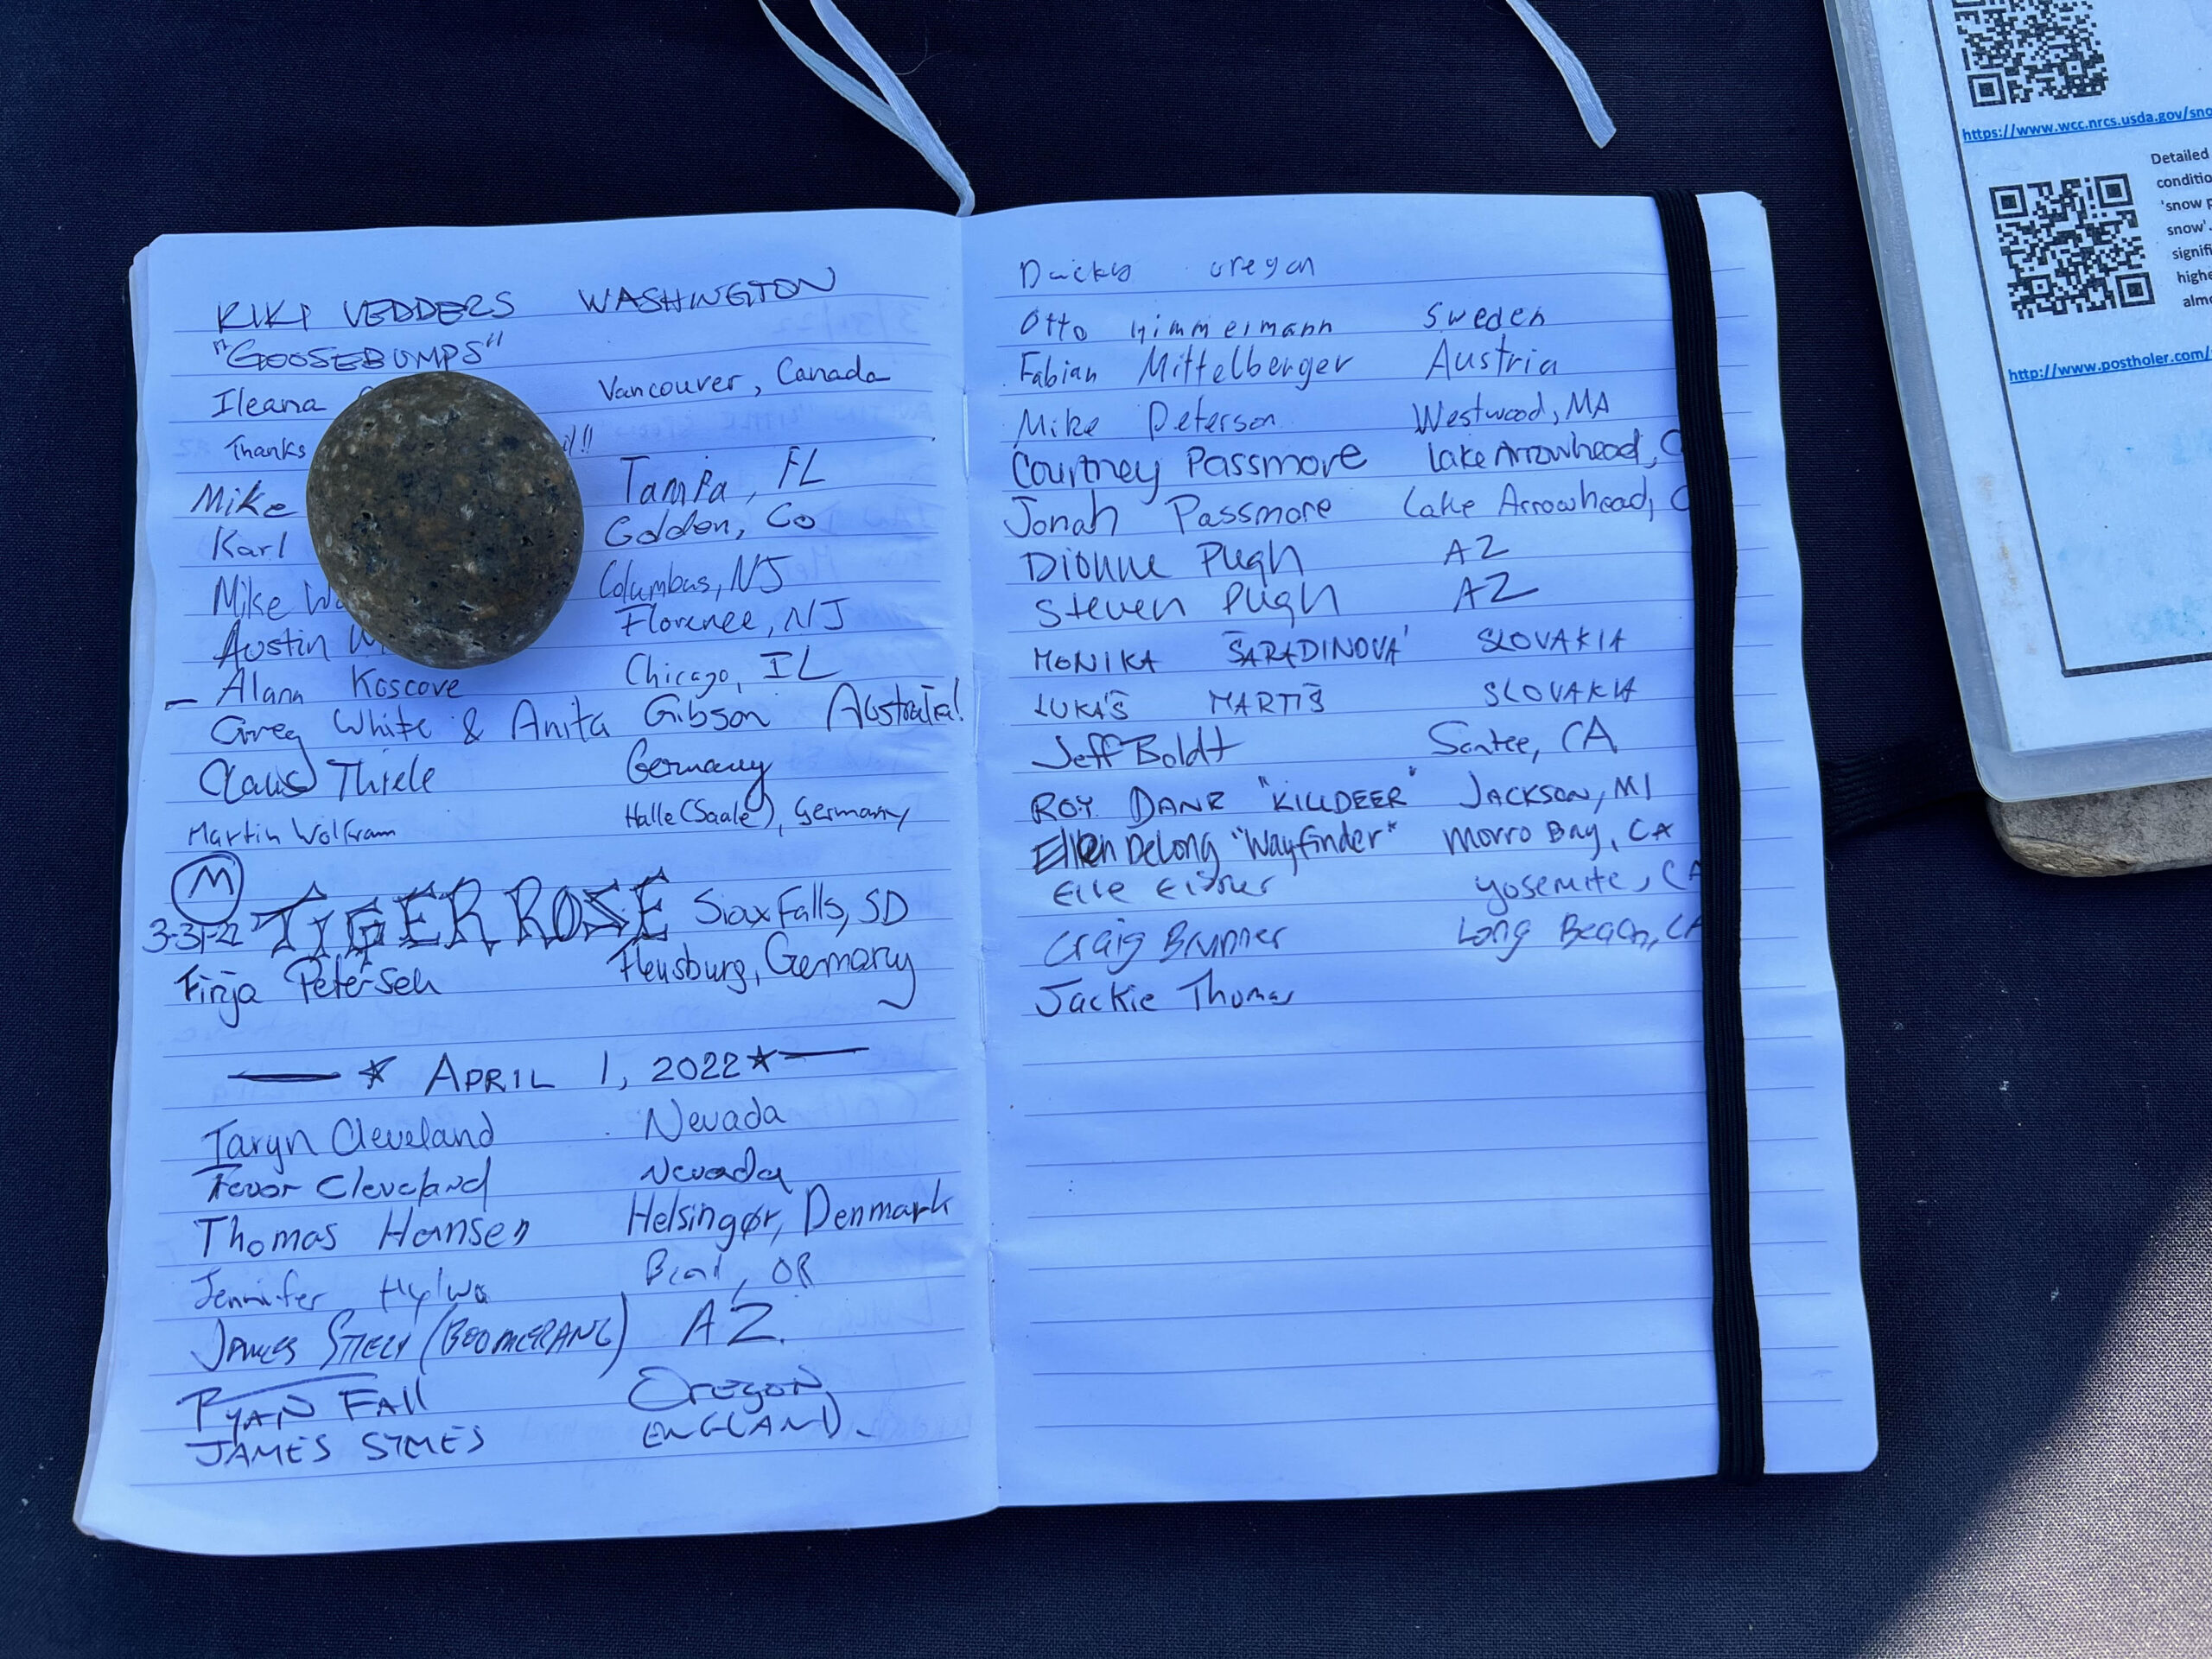 KIKI VEDDERS WASHINGTON
"GOOSEBUMPS"
Ileana Vancouver, Canada
Thanks !!
Mike Tampa, FL
Karl Golden, Co
Mike Columbus, NJ
Austin Florence, NJ
- Alana Koscove Chicago, IL
Greg White & Anita Gibson Australia!
Claus Thiele Germany
Martin Wolfram Halle (Saale), Germany
M
3-31-22 TIGER ROSE Sioux Falls, SD
Finja Petersen Flensburg, Germany
APRIL 1, 2022
Taryn Cleveland Nevada
Trevor Cleveland Nevada
Thomas Hansen Helsingør, Denmark
Jennifer Hylwa Bend, OR
JAMES (BOOMERANG) AZ.
RYAN FAll OREGON
JAMES ENGLAND.
Ducky oregon
Otto Sweden
Fabian Mittelberger Austria
Mike Peterson Westwood, MA
Courtney Passmore Lake Arrowhead, C
Jonah Passmore Lake Arrowhead, C
Dionne Pugh AZ
Steven Pugh AZ
MONIKA ŠARADINOVÁ SLOVAKIA
LUKÁŠ MARTIŠ SLOVAKIA
Jeff Boldt Santee, CA
ROY DANE "KILLDEER" JACKSON, MI
Ellen DeLong "Wayfinder" Morro Bay, CA
Elle Eisner Yosemite, CA
Craig Brunner Long Beach, CA
Jackie Thomas
https://www.wcc.nrcs.usda.gov/sno
Detailed
conditio
'snow p
snow'.
signifi
highe
almo
http://www.postholer.com/